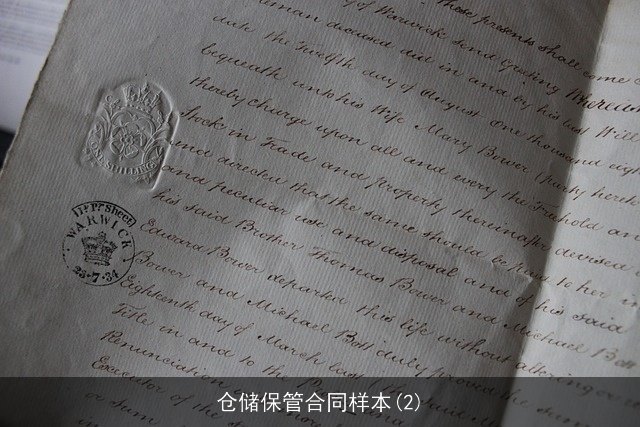 of Warwick send Greeting Whereas
deceased did in and by his last Will
date the Twelfth day of August One thousand eigh
bequeath unto his Wife Mary Bower (party hereto
thereby charge upon all and every the Freehold and
Stock in Trade and property thereinafter devised
and directed that the same should be paid to her
and peculiar use and disposal and of his said
his said Brother Thomas Bower and Michael Bott
Edward Bower departed this life without altering or
Bower and Michael Bott duly proved the same
Eighteenth day of March last
Title in and to the
Renunciation
Executor of the
or sum
ONE SHILLING
Sheet
WARWICK
23·7·34
仓储保管合同样本(2)